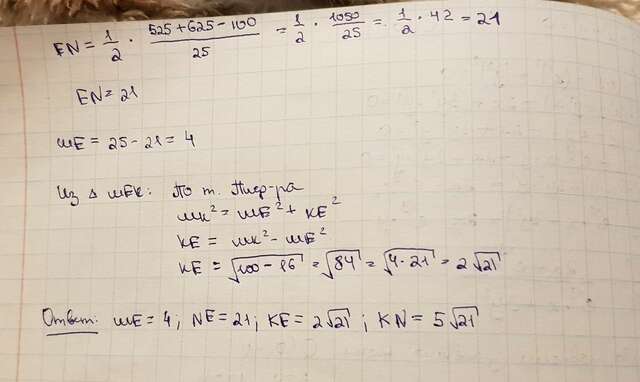 EN = 1/2 · (525+625-100)/25 = 1/2 · 1050/25 = 1/2 · 42 = 21
EN = 21
ME = 25 - 21 = 4
Из △ MEK: По т. Пиф-ра
MK² = ME² + KE²
KE = MK² - ME²
KE = √100-16 = √84 = √4·21 = 2√21
Ответ: ME = 4; NE = 21; KE = 2√21; KN = 5√21